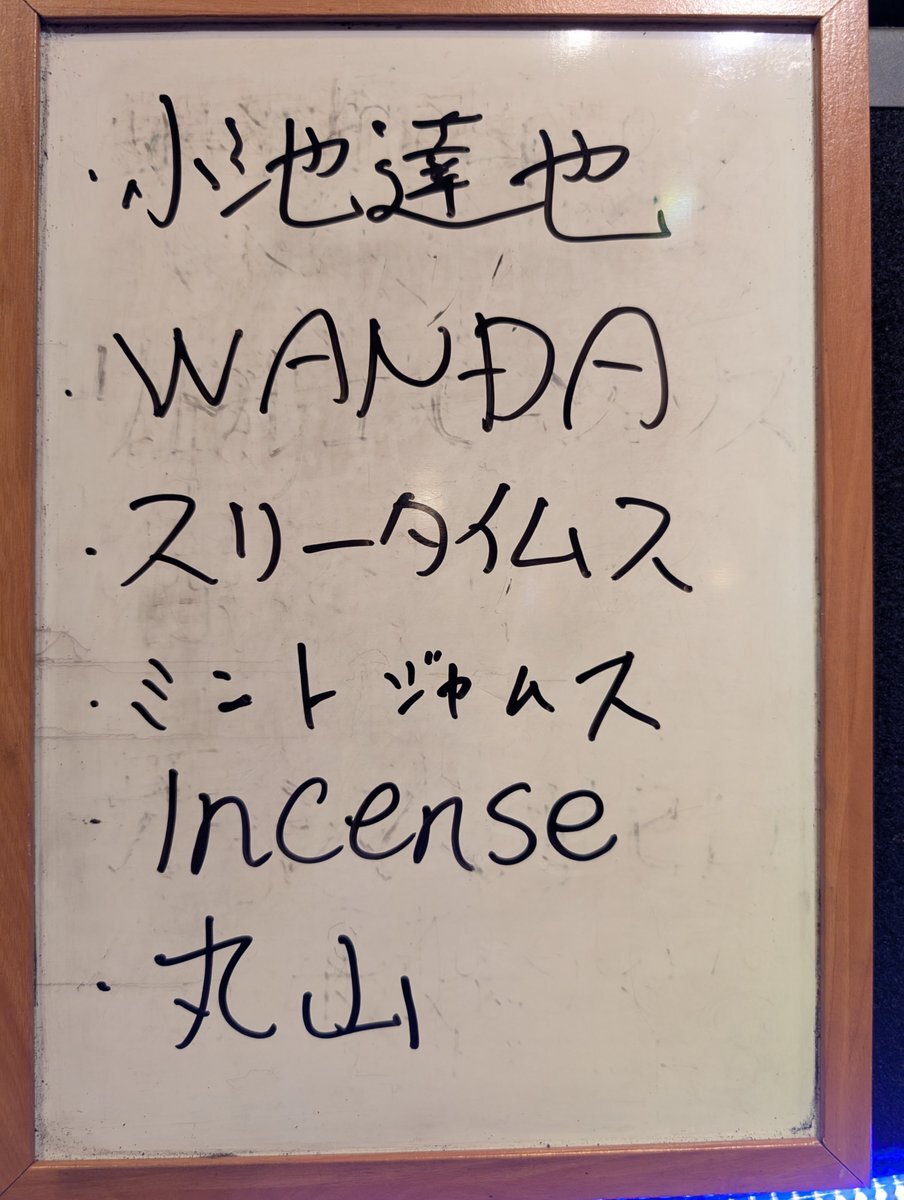 ・小池達也
・WANDA
・スリータイムス
・ミントジャムス
・Incense
・丸山